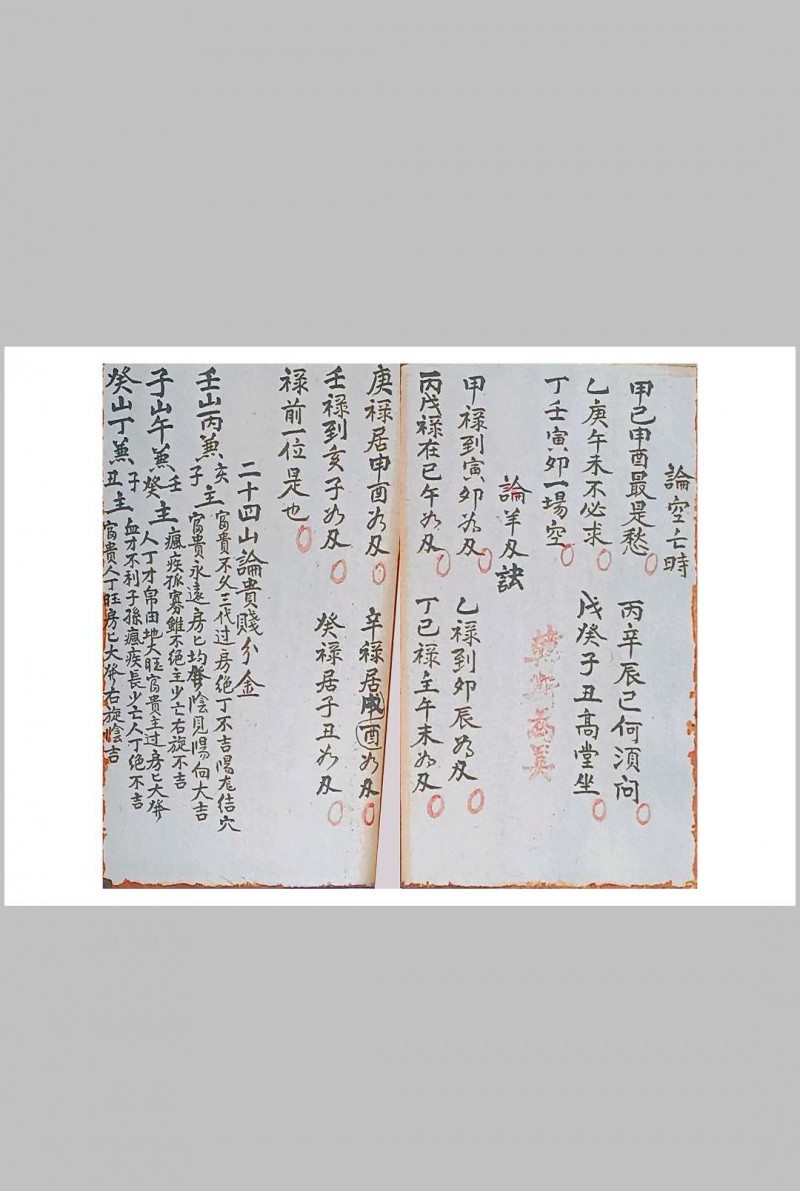 論空亡時
甲己申酉最是愁 丙辛辰巳何須问
乙庚午未不必求 戊癸子丑高堂坐
丁壬寅卯一場空
論羊刄訣
甲禄到寅卯為刄 乙禄到卯辰為刄
丙戊禄在巳午為刄 丁己禄主午未為刄
庚禄居申酉为刄 辛禄居戌酉为刄
壬禄到亥子为刄 癸禄居子丑为刄
禄前一位是也
二十四山論貴賤分金
壬山丙兼亥子主 富貴不久三代过房绝丁不吉陽龙结穴
富貴永遠房匕均發陰見陽向大吉
子山午兼壬癸主 瘋疾孤寡鰥不绝主少亡右旋不吉
人丁才帛田地大旺富貴主过房匕大發
癸山丁兼子丑主 血才不利子孫瘋疾長少亡人丁绝不吉
富貴人丁旺房匕大發右旋陰吉